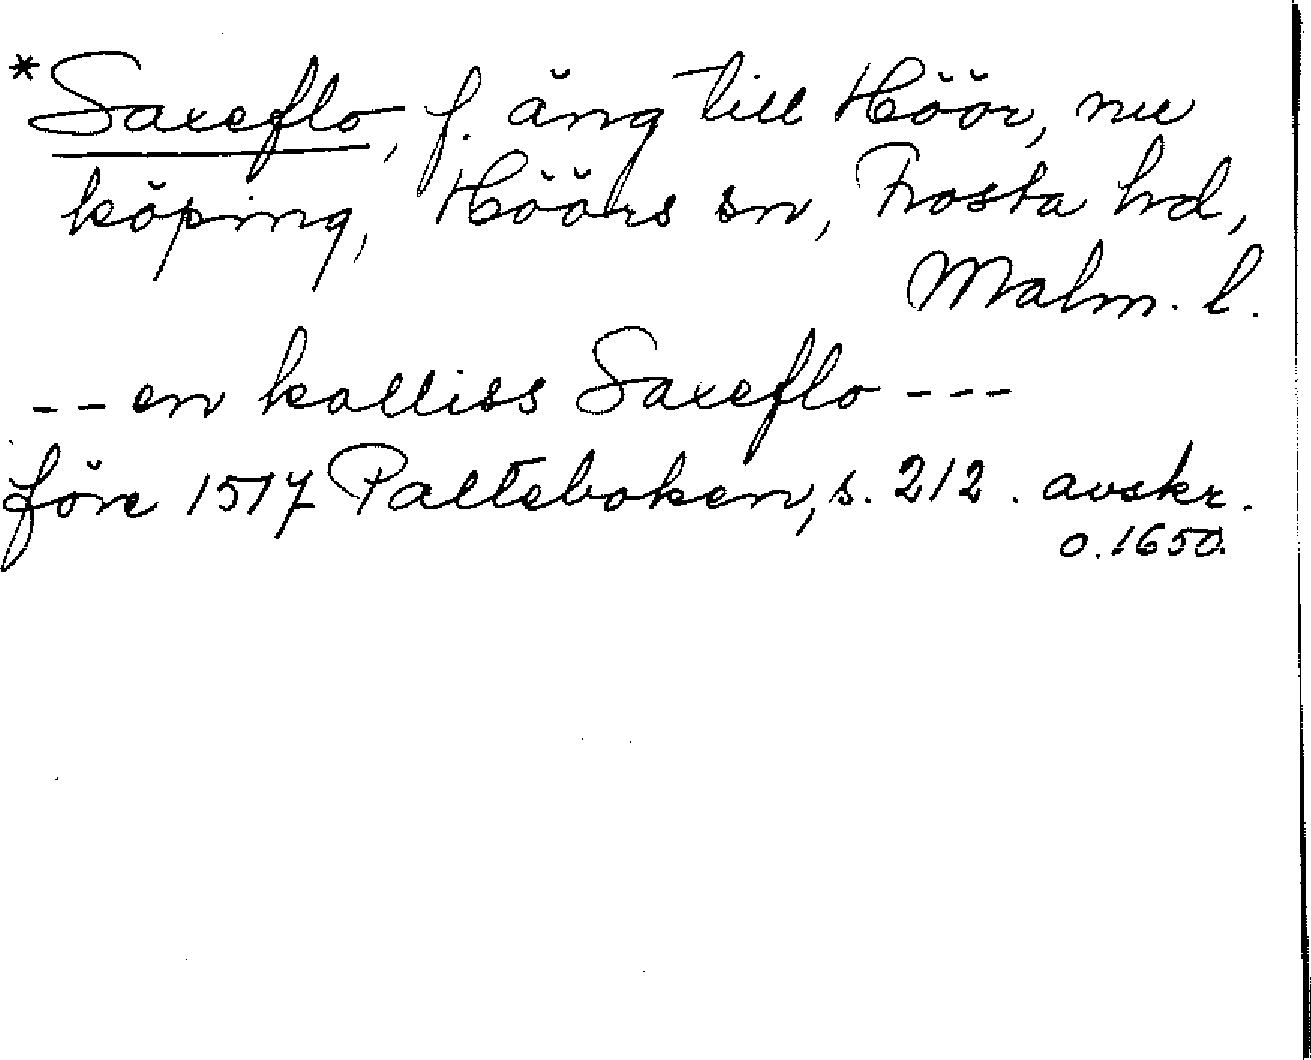 *Saxeflo, f. äng till Höör, nu
köping, Höörs sn, Frosta hd,
Malm. l.
-- en kalliss Saxeflo ---
före 1517 Palteboken, s. 212. avskr.
o. 1650.